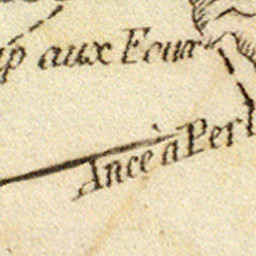 aux Ecur
Ance à Perl